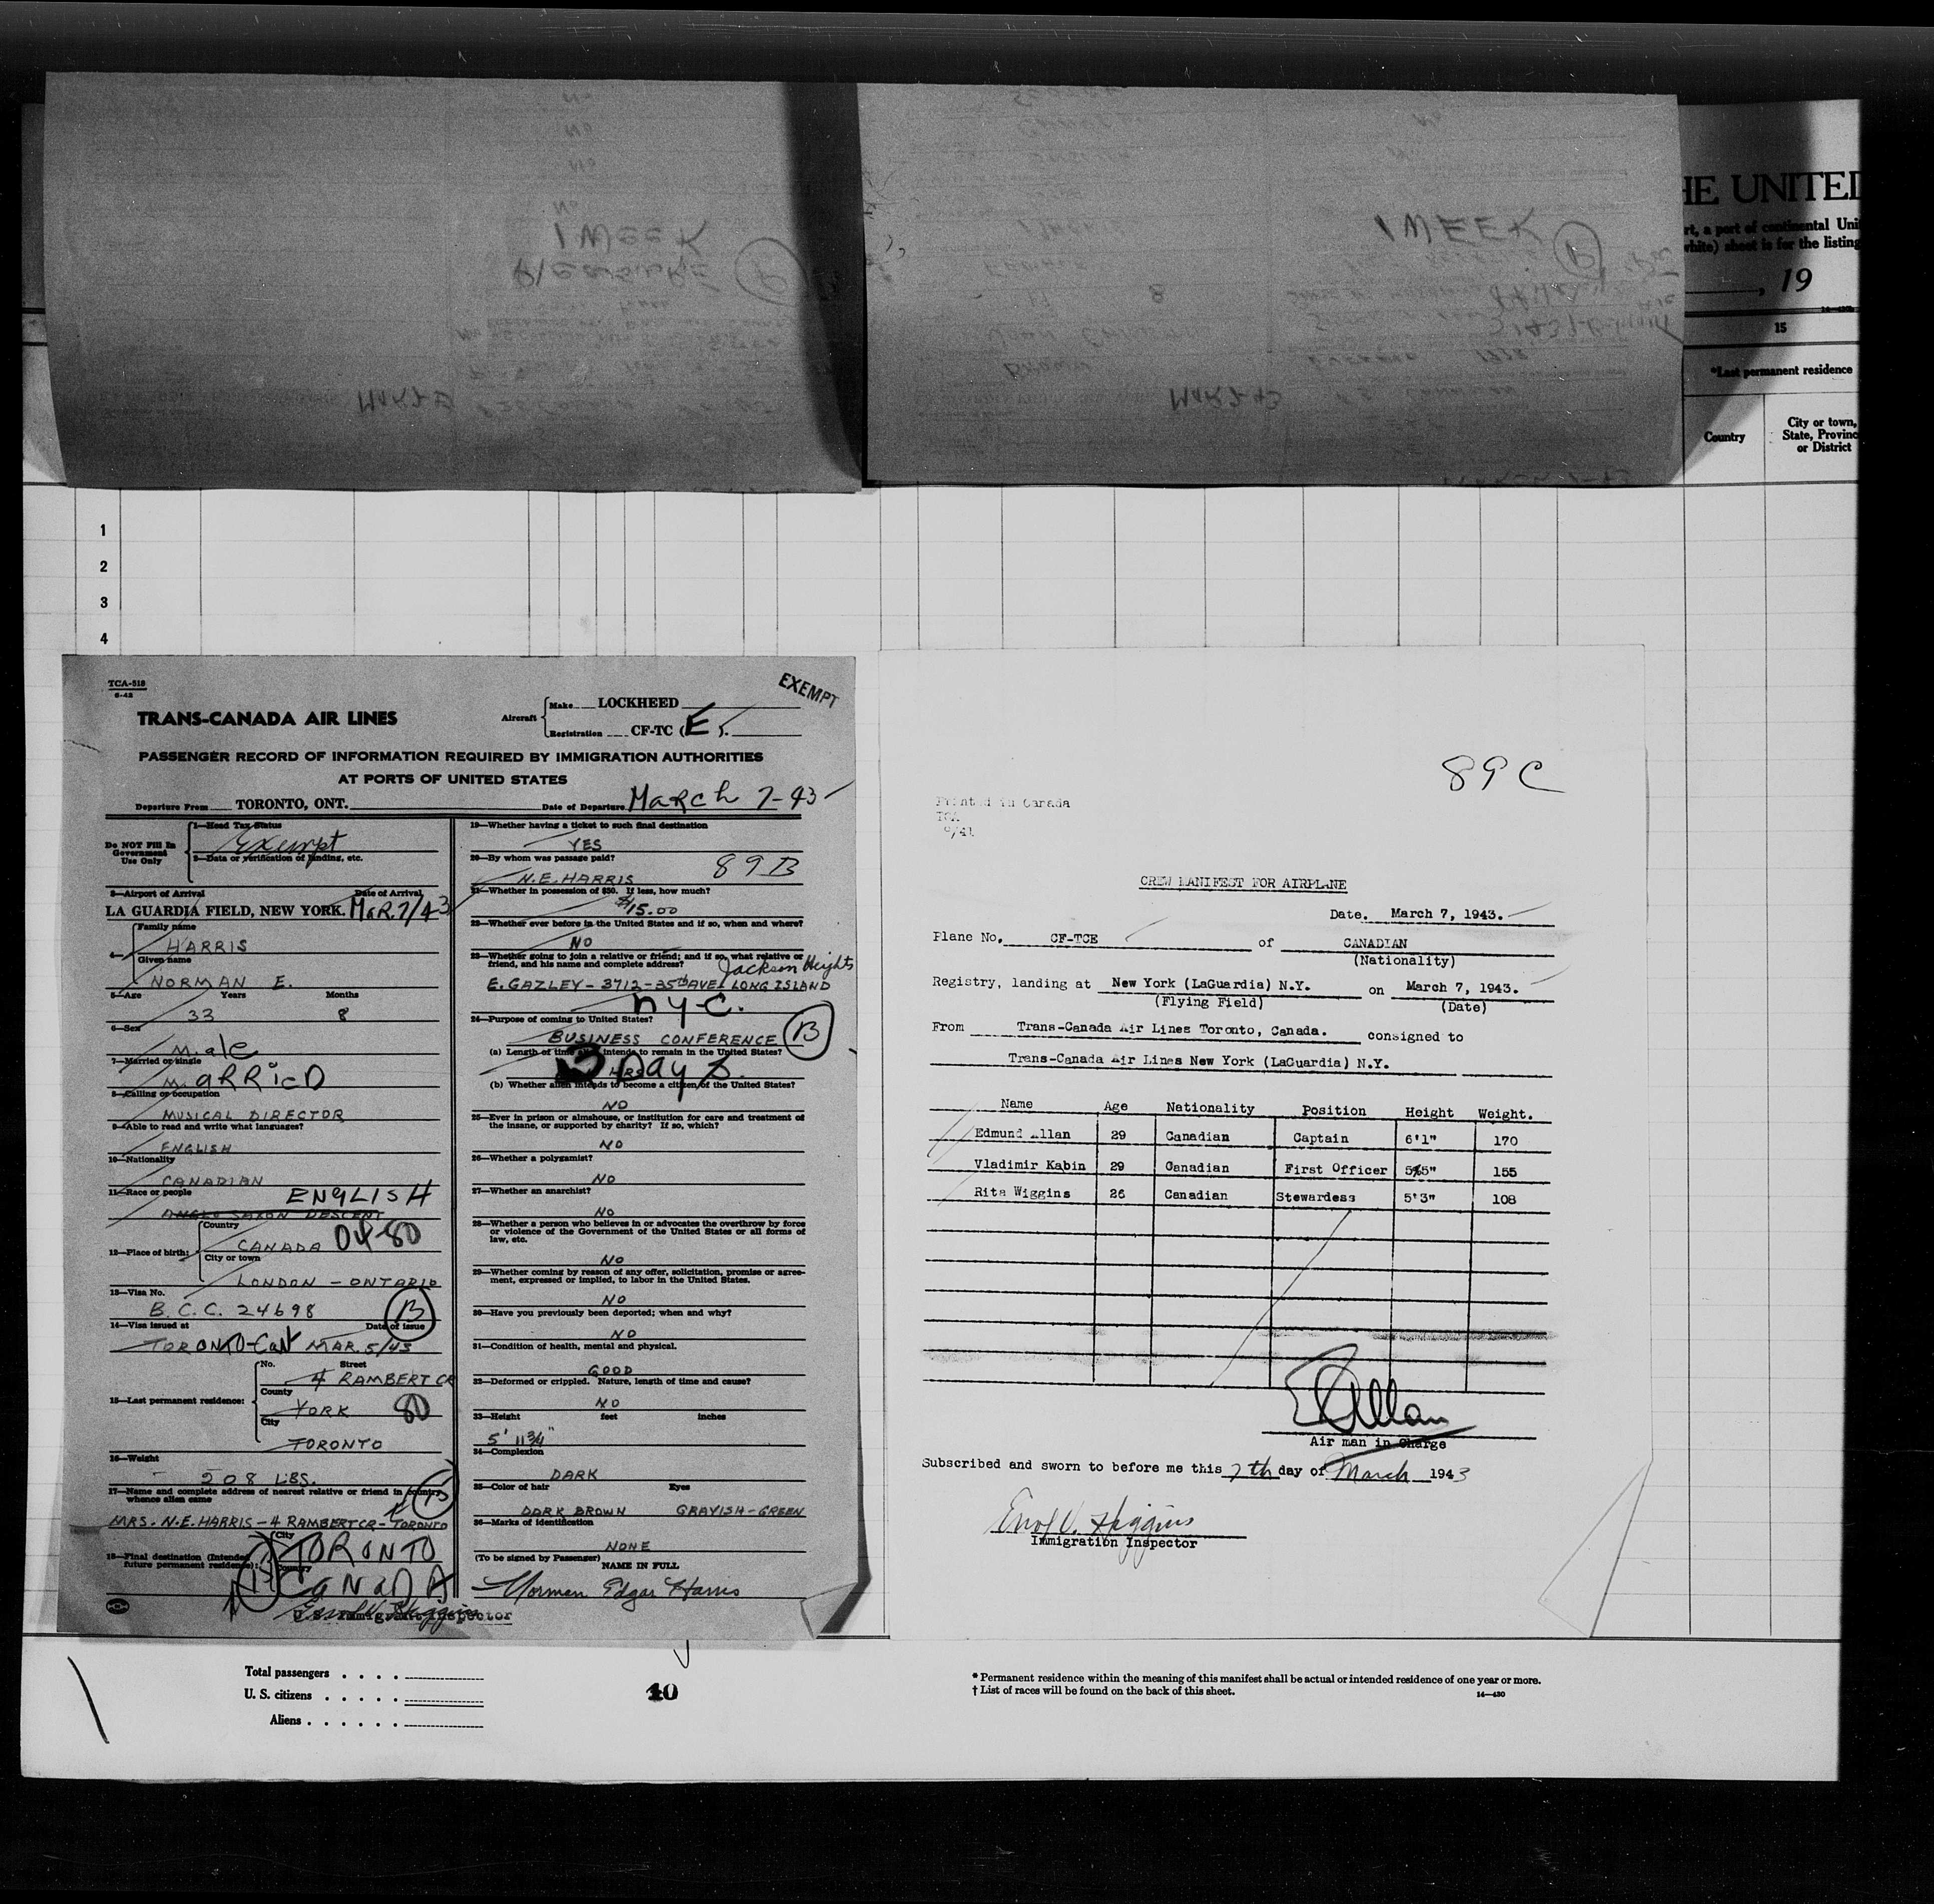 1 WEEK
PLEASURE
1 WEEK
HE UNITED
rt, a part of continental Uni
white) sheet is for the listing
, 19
15
*Last permanent residence
Country
City or town,
State, Provinc
or District
1
2
3
4
TCA-518
6-42
EXEMPT
TRANS-CANADA AIR LINES
Aircraft
Make LOCKHEED
Registration CF-TC (E).
PASSENGER RECORD OF INFORMATION REQUIRED BY IMMIGRATION AUTHORITIES
AT PORTS OF UNITED STATES
Departure From TORONTO, ONT. Date of Departure March 7-43
Do NOT Fill In
Government
Use Only
1—Head Tax Status
Exempt
2—Data or verification of landing, etc.
3—Airport of Arrival Date of Arrival
LA GUARDIA FIELD, NEW YORK. MAR. 7/43
4—
Family name
HARRIS
Given name
NORMAN E.
5—Age Years Months
33 8
6—Sex
Male
7—Married or single
MARRIED
8—Calling or occupation
MUSICAL DIRECTOR
9—Able to read and write what languages?
ENGLISH
10—Nationality
CANADIAN
11—Race or people ENGLISH
ANGLO SAXON DESCENT
12—Place of birth:
Country
CANADA 04-80
City or town
LONDON - ONTARIO
13—Visa No.
B.C.C. 24698 B
14—Visa issued at Date of Issue
TORONTO-Cant MAR. 5/43
15—Last permanent residence:
No. Street
4 RAMBERT CR
County
YORK 80
City
TORONTO
16—Weight
208 LBS.
17—Name and complete address of nearest relative or friend in country
whence alien came
MRS. N.E. HARRIS - 4 RAMBERT CR - TORONTO
18—Final destination (Intended
future permanent residence):
City
TORONTO
Country
CANADA
U.S. Immigrant Inspector
19—Whether having a ticket to such final destination
YES
20—By whom was passage paid? 89B
N.E. HARRIS
21—Whether in possession of $50. If less, how much?
$15.00
22—Whether ever before in the United States and if so, when and where?
NO
23—Whether going to join a relative or friend; and if so, what relative or
friend, and his name and complete address? Jackson Heights
E. GAZLEY - 3712 - 85th AVE. LONG ISLAND
NYC.
24—Purpose of coming to United States?
BUSINESS CONFERENCE B
(a) Length of time alien intends to remain in the United States?
Days.
(b) Whether alien intends to become a citizen of the United States?
NO
25—Ever in prison or almshouse, or institution for care and treatment of
the insane, or supported by charity? If so, which?
NO
26—Whether a polygamist?
NO
27—Whether an anarchist?
NO
28—Whether a person who believes in or advocates the overthrow by force
or violence of the Government of the United States or all forms of
law, etc.
NO
29—Whether coming by reason of any offer, solicitation, promise or agree-
ment, expressed or implied, to labor in the United States.
NO
30—Have you previously been deported; when and why?
NO
31—Condition of health, mental and physical.
GOOD
32—Deformed or crippled. Nature, length of time and cause?
NO
33—Height feet inches
5' 11 3/4"
34—Complexion
DARK
35—Color of hair Eyes
DARK BROWN GRAYISH-GREEN
36—Marks of identification
NONE
(To be signed by Passenger)
NAME IN FULL
Norman Edgar Harris
89C
Printed in Canada
TCA
9/41
CREW MANIFEST FOR AIRPLANE
Date. March 7, 1943.
Plane No. CF-TCE of CANADIAN
(Nationality)
Registry, landing at New York (LaGuardia) N.Y. on March 7, 1943.
(Flying Field) (Date)
From Trans-Canada Air Lines Toronto, Canada. consigned to
Trans-Canada Air Lines New York (LaGuardia) N.Y.
Name Age Nationality Position Height Weight.
Edmund Allan 29 Canadian Captain 6'1" 170
Vladimir Kabin 29 Canadian First Officer 5'5" 155
Rita Wiggins 26 Canadian Stewardess 5'3" 108
E Allan
Air man in Charge
Subscribed and sworn to before me this 7th day of March 1943
Errol V. Higgins
Immigration Inspector
Total passengers . . . .
U. S. citizens . . . . .
Aliens . . . . . .
10
* Permanent residence within the meaning of this manifest shall be actual or intended residence of one year or more.
† List of races will be found on the back of this sheet.
14—430